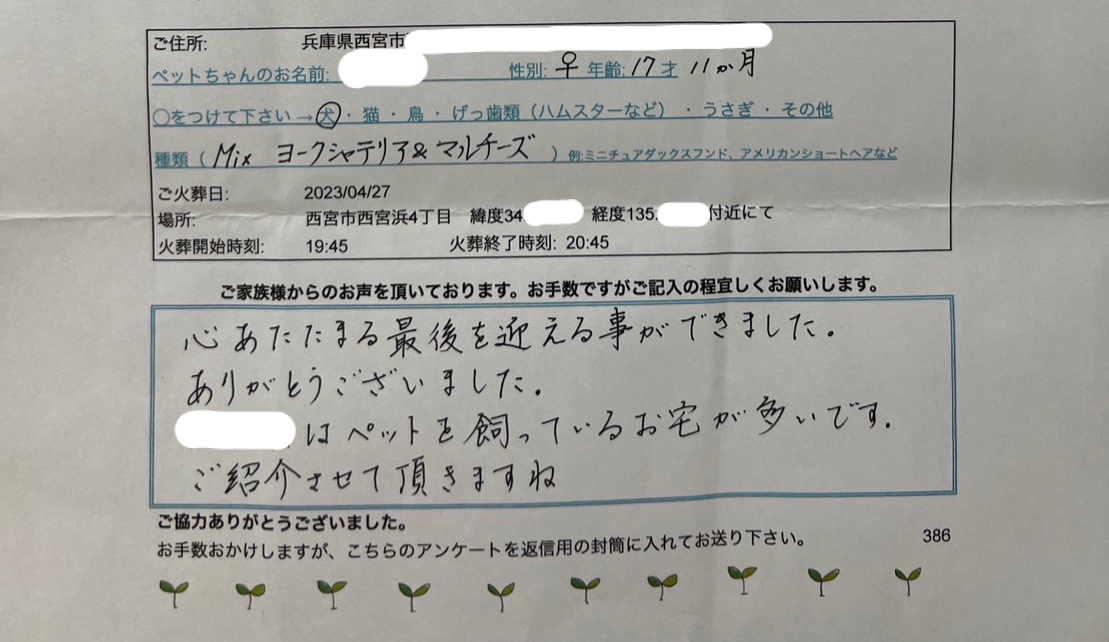 ご住所: 兵庫県西宮市
ペットちゃんのお名前: 性別: ♀ 年齢: 17才 11か月
○をつけて下さい→犬・猫・鳥・げっ歯類（ハムスターなど）・うさぎ・その他
種類（Mix ヨークシャテリア&マルチーズ）例:ミニチュアダックスフンド、アメリカンショートヘアなど
ご火葬日: 2023/04/27
場所: 西宮市西宮浜4丁目 緯度34. 経度135. 付近にて
火葬開始時刻: 19:45 火葬終了時刻: 20:45
ご家族様からのお声を頂いております。お手数ですがご記入の程宜しくお願いします。
心あたたまる最後を迎える事ができました。
ありがとうございました。
はペットを飼っているお宅が多いです。
ご紹介させて頂きますね
ご協力ありがとうございました。
お手数おかけしますが、こちらのアンケートを返信用の封筒に入れてお送り下さい。 386